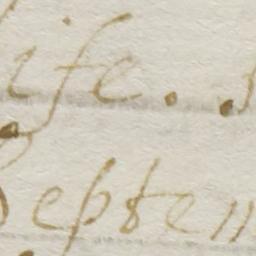 ife.
Septem